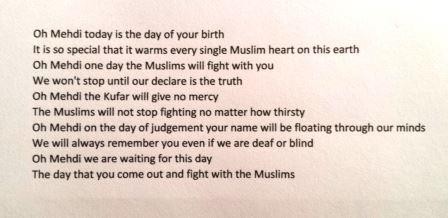 Oh Mehdi today is the day of your birth
It is so special that it warms every single Muslim heart on this earth
Oh Mehdi one day the Muslims will fight with you
We won't stop until our declare is the truth
Oh Mehdi the Kufar will give no mercy
The Muslims will not stop fighting no matter how thirsty
Oh Mehdi on the day of judgement your name will be floating through our minds
We will always remember you even if we are deaf or blind
Oh Mehdi we are waiting for this day
The day that you come out and fight with the Muslims